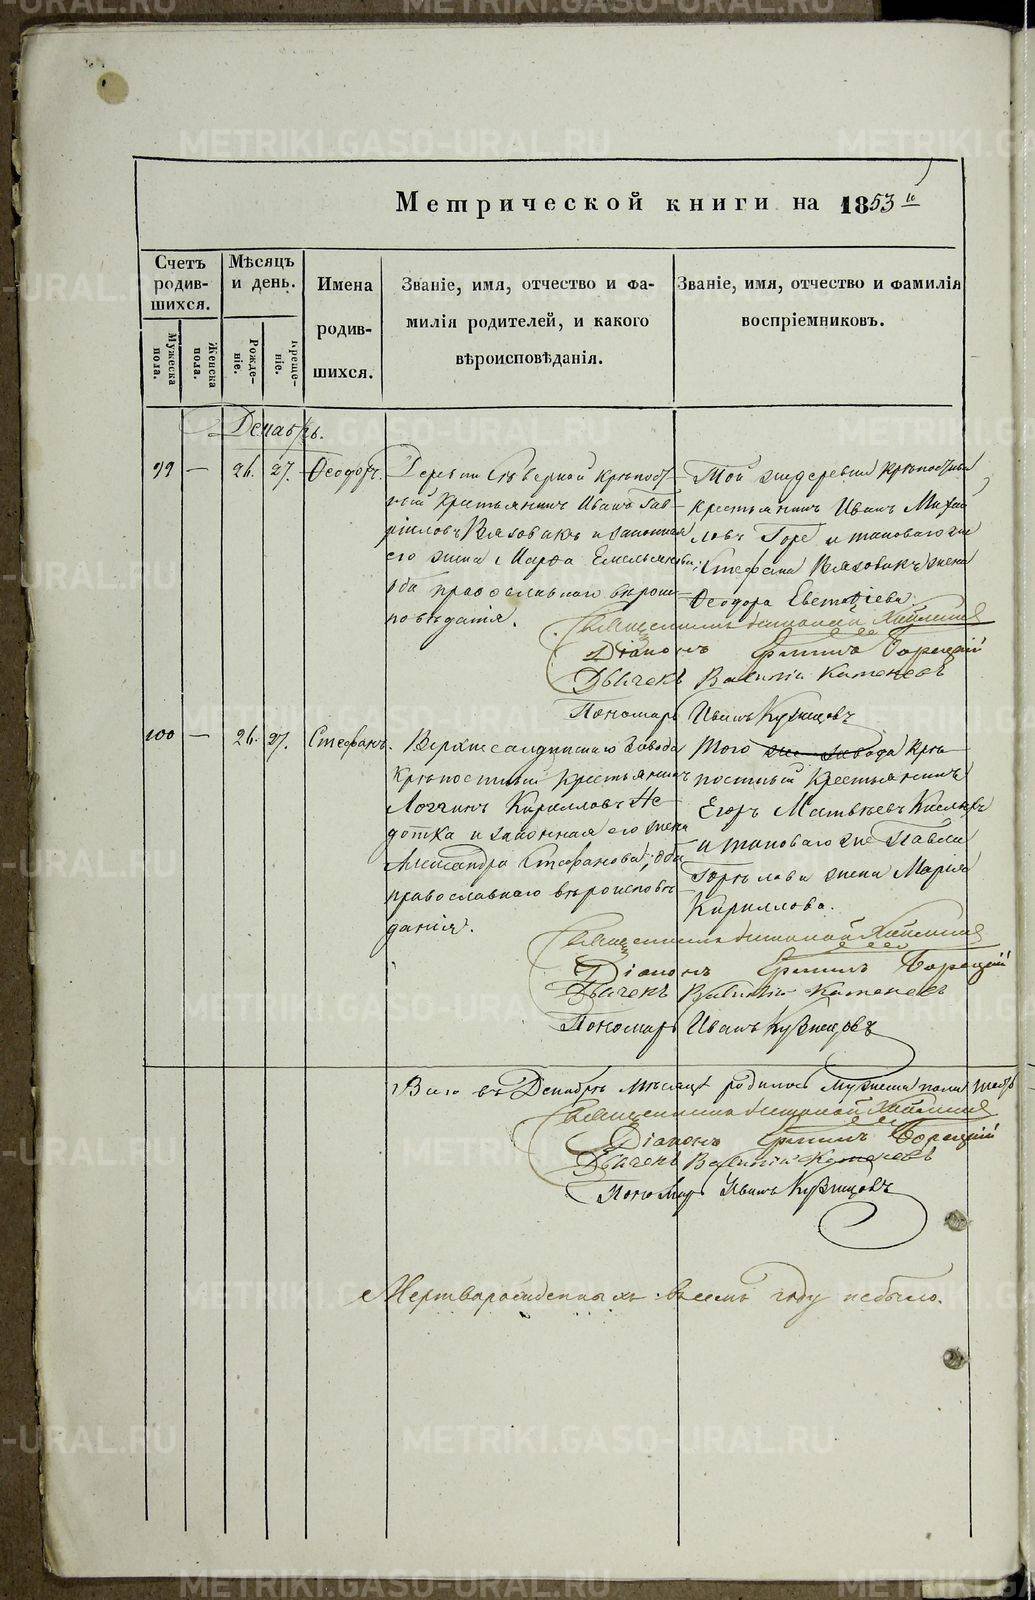 Метрической книги на 1853 го
Счетъ родив- шихся.
Мѣсяцъ и день.
Имена родив- шихся.
Званіе, имя, отчество и фа-
милія родителей, и какого
вѣроисповѣданія.
Званіе, имя, отчество и фамилія
воспріемниковъ.
Мужеска пола.
Женска пола.
Рожде- ніе.
Креще- ніе.
Декабрь.
99 — 26. 27. Ѳеодоръ.
Деревни Сѣверной крѣпост
ный крестьянинъ Иванъ Гав
риловъ Вязовикъ и законная
его жена Марѳа Емельянова
оба православнаго вѣроис
повѣданія.
Той же деревни крѣпостный
крестьянинъ Иванъ Михай
ловъ Горе и таковаго же
Стефана Вязовикъ жена
Ѳеодора
Священникъ
Діаконъ Борецкій
Дьячекъ Василій Каменевъ
Пономарь Иванъ Кузнецовъ
100 — 26. 27. Стефанъ.
Верхнесалдинскаго завода
крѣпостный крестьянинъ
Логгинъ Кирилловъ Не
дотка и законная его жена
Александра Стефанова, оба
православнаго вѣроисповѣ
данія.
Того же завода крѣ
постный крестьянинъ
Егоръ Матвѣевъ
и таковаго же Павла
Горѣлова жена Марія
Кириллова.
Священникъ
Діаконъ Борецкій
Дьячекъ Василій Каменевъ
Пономарь Иванъ Кузнецовъ
Всего въ Декабрѣ мѣсяцѣ родилось мужеска пола шесть
Священникъ
Діаконъ Борецкій
Дьячекъ Василій Каменевъ
Пономарь Иванъ Кузнецовъ
Мертворожденныхъ въ семъ году небыло.
METRIKI.GASO-URAL.RU